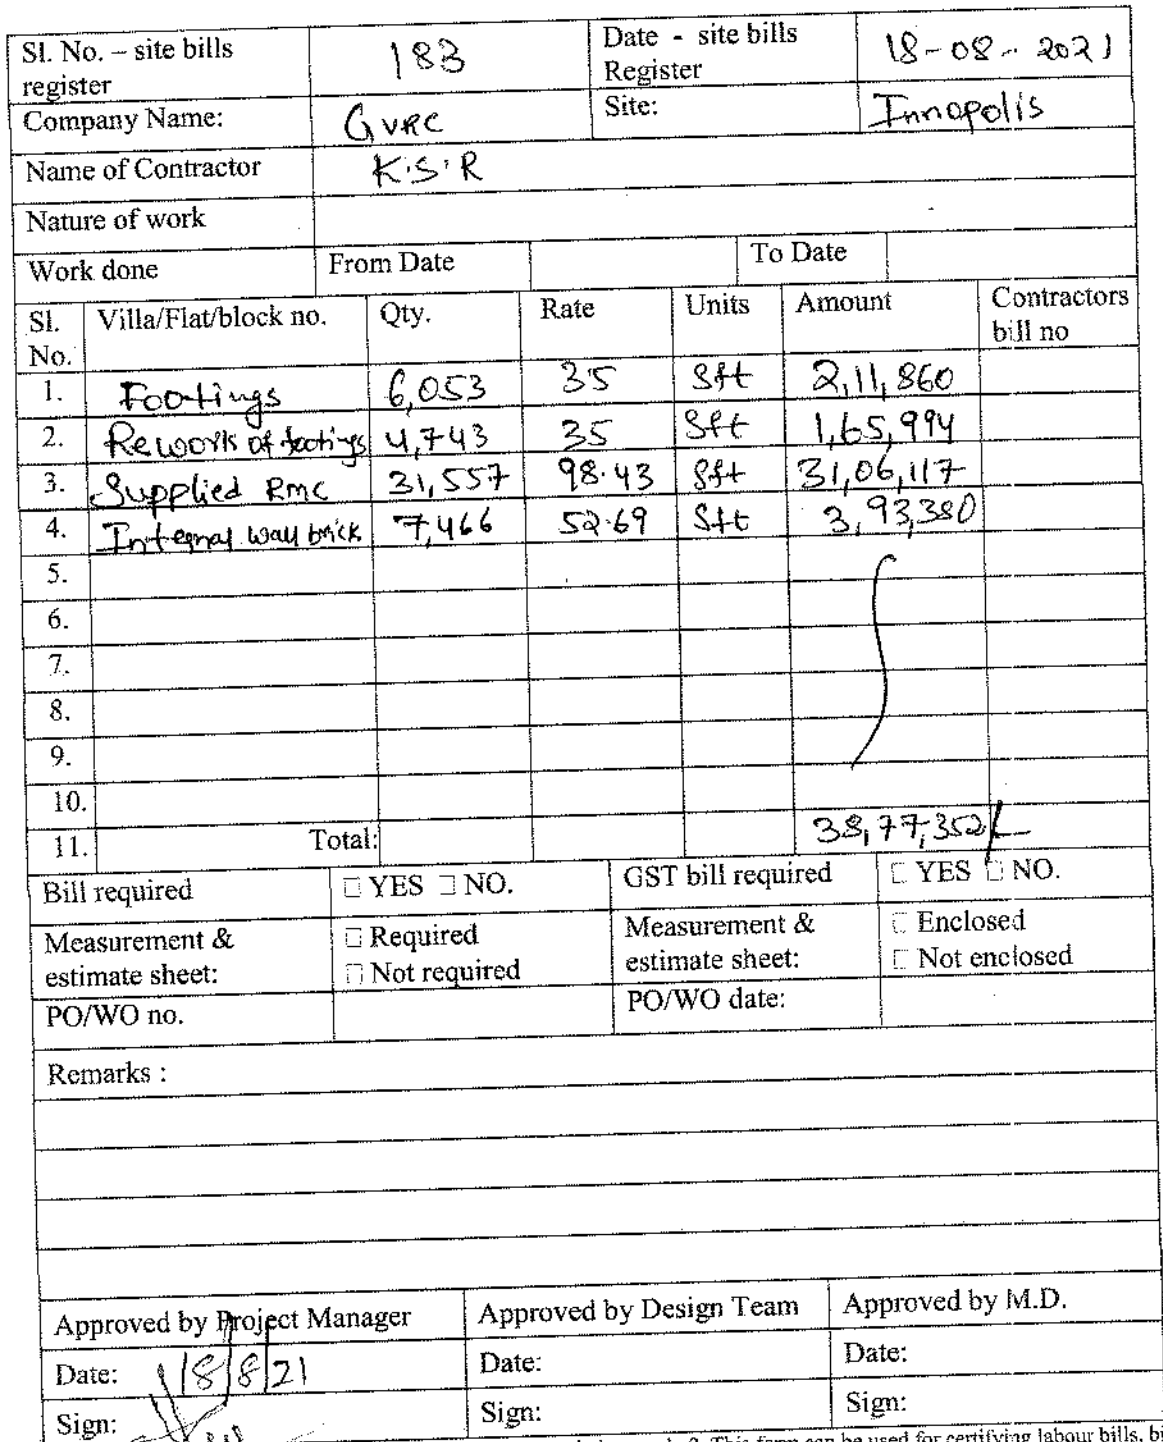 Sl. No. – site bills register 183 Date - site bills Register 18-08-2021
Company Name: GVRC Site: Innopolis
Name of Contractor K.S.R
Nature of work
Work done From Date To Date
Sl. No. Villa/Flat/block no. Qty. Rate Units Amount Contractors bill no
1. Footings 6,053 35 Sft 2,11,860
2. Rework of footings 4,743 35 Sft 1,65,994
3. Supplied RMC 31,557 98.43 Sft 31,06,117
4. Integnal wall brick 7,466 52.69 Sft 3,93,380
5.
6.
7.
8.
9.
10.
11. Total: 38,77,352/-
Bill required YES NO. GST bill required YES NO.
Measurement & estimate sheet: Required Not required Measurement & estimate sheet: Enclosed Not enclosed
PO/WO no. PO/WO date:
Remarks :
Approved by Project Manager Approved by Design Team Approved by M.D.
Date: 18/8/21 Date: Date:
Sign: Sign: Sign:
This form can be used for certifying labour bills,